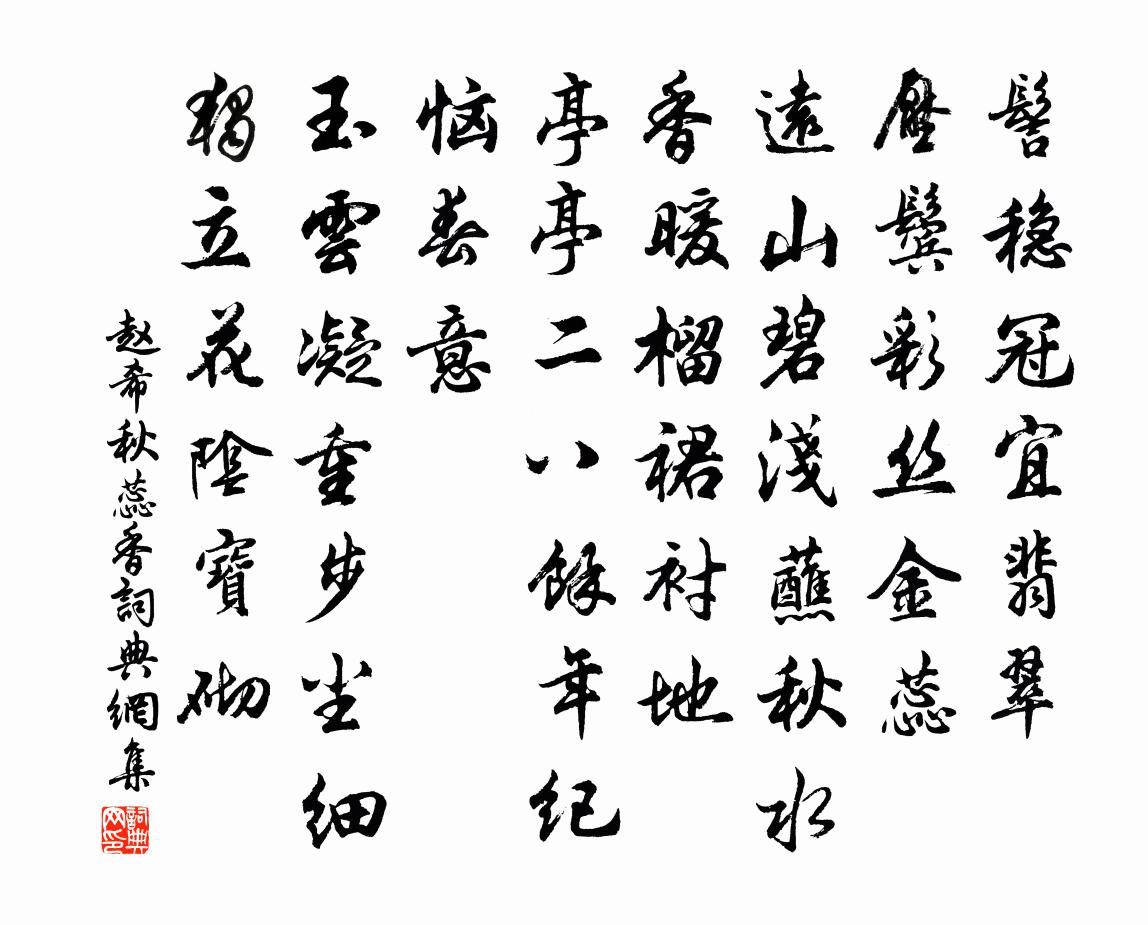 髻稳冠宜翡翠
壓鬓彩丝金蕊
遠山碧淺蘸秋水
香暖榴裙衬地
亭亭二八餘年纪
恼春意
玉雲凝重步尘细
獨立花陰寶砌
赵希秋蕊香詞典網集
詞典网印